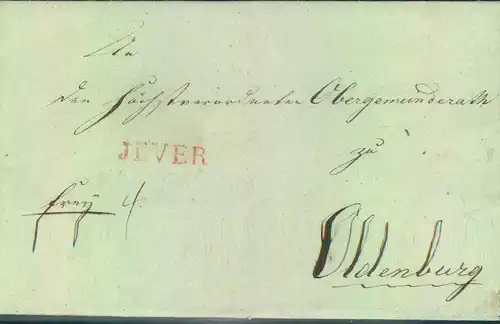 An
den Höchstverordneten Obergemunderath
JEVER
zu
frey 4.
Oldenburg